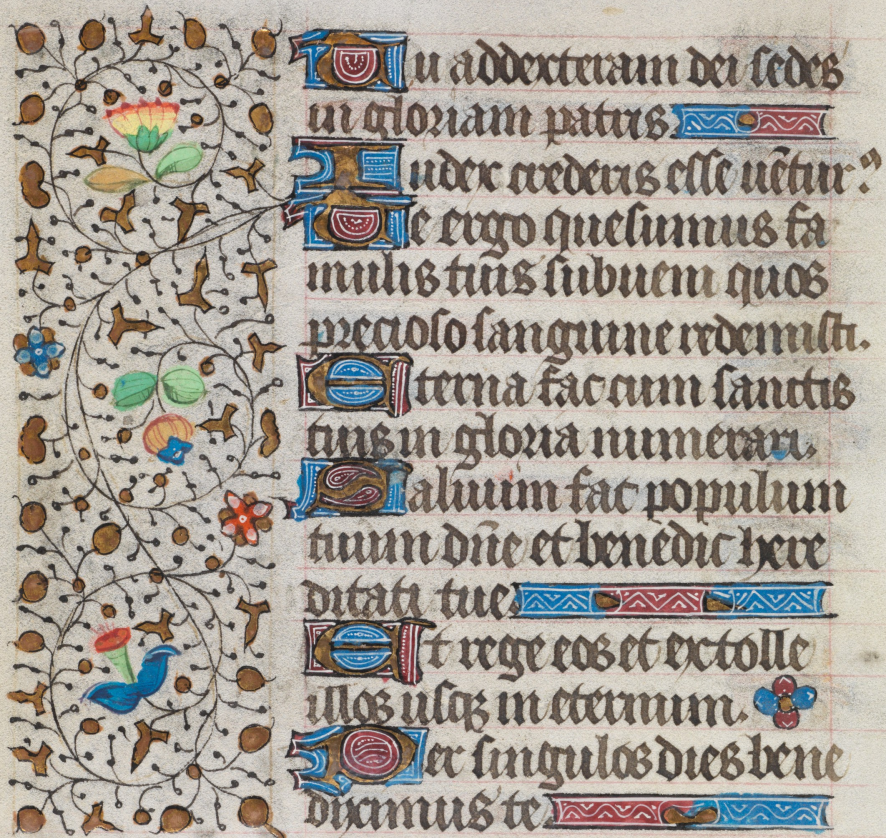 Tu addexteram dei sedes
in gloriam patris.
Iudex crederis esse uētur?
Te ergo quesumus fa
mulis tuis subueni quos
precioso sanguine redemisti.
Eterna fac cum sanctis
tuis in gloria numerari.
Saluum fac populum
tuum dñe et benedic here
ditati tue.
Et rege eos et extolle
illos usqꝫ in eternum.
Per singulos dies bene
dicimus te.